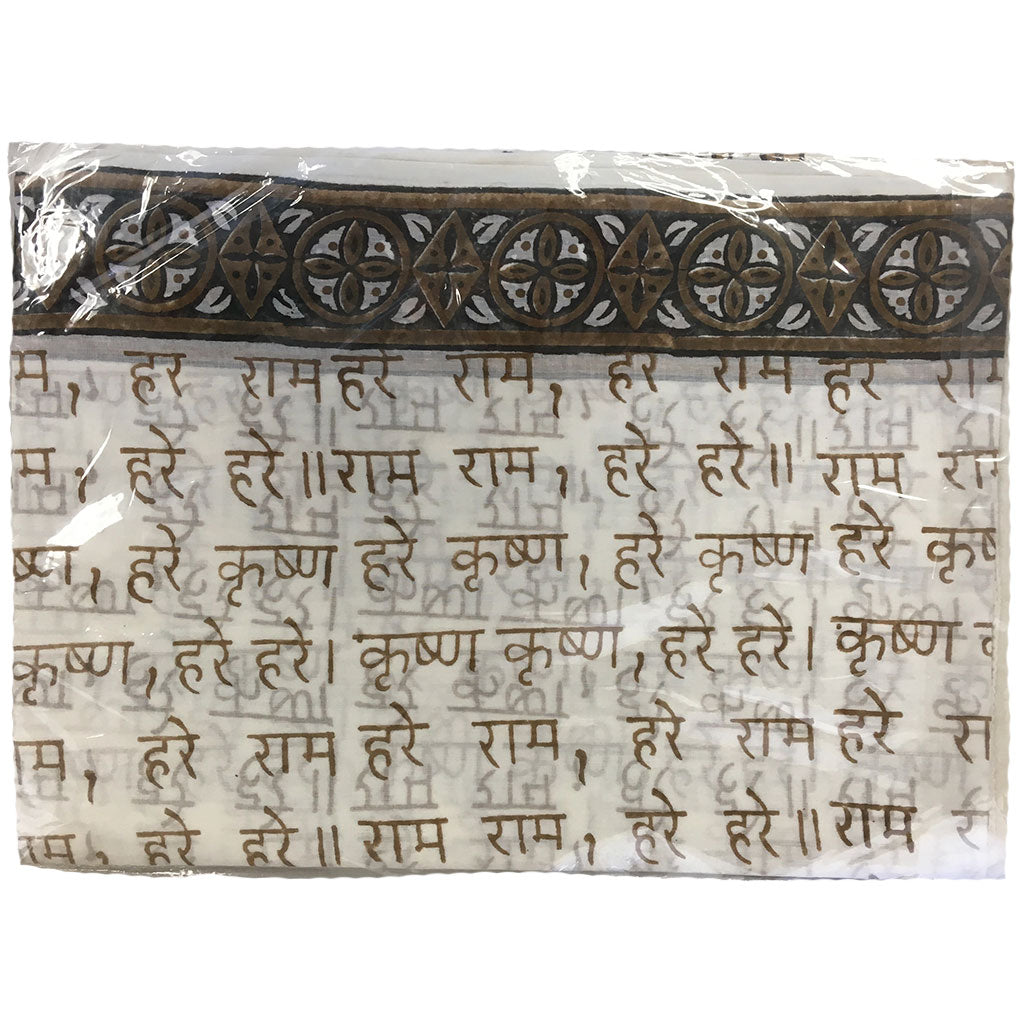 म, हरे राम हरे राम, हरे राम हरे
म, हरे हरे॥ राम राम, हरे हरे॥ राम
हरे कृष्ण हरे कृष्ण, हरे कृष्ण हरे
कृष्ण, हरे हरे। कृष्ण कृष्ण, हरे हरे। कृष्ण
राम, हरे राम हरे राम, हरे राम हरे
राम, हरे हरे॥ राम राम, हरे हरे॥ राम